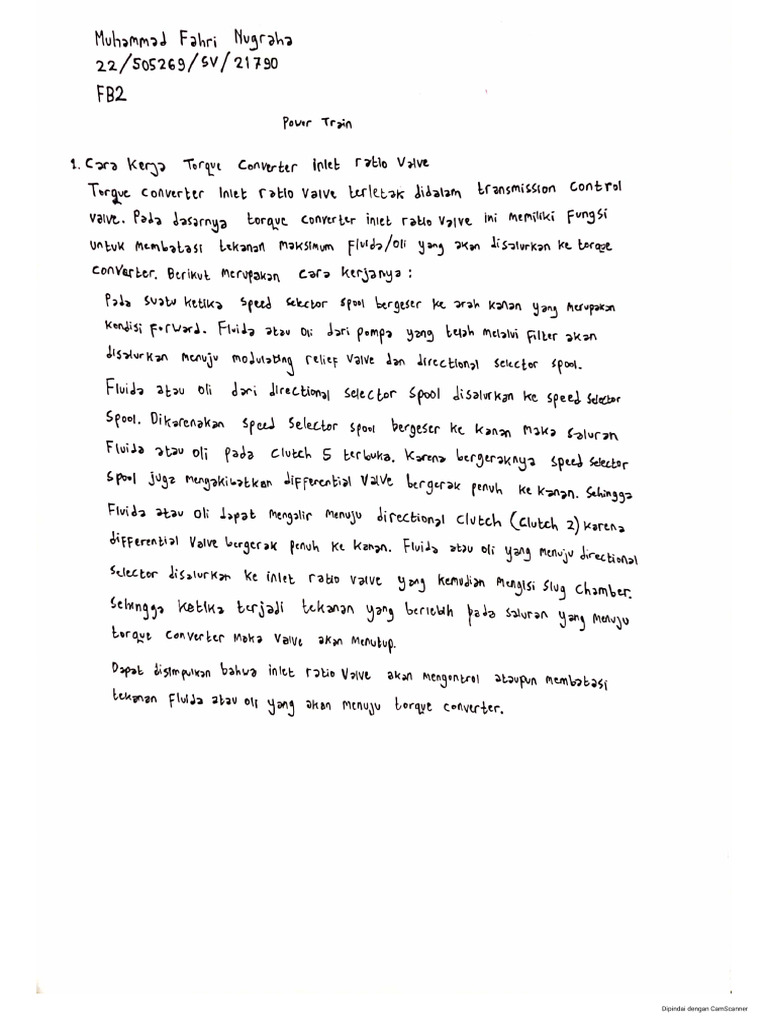 Muhammad Fahri Nugraha
22/505269/SV/21790
FB2
Power Train
1. Cara Kerja Torque Converter inlet ratio Valve
Torque converter Inlet ratio Valve terletak didalam transmission control
valve. Pada dasarnya torque converter inlet ratio valve ini memiliki Fungsi
untuk membatasi tekanan maksimum Fluida/oli yang akan disalurkan ke torque
converter. Berikut merupakan cara kerjanya :
Pada suatu ketika speed selector spool bergeser ke arah kanan yang merupakan
kondisi Forward. Fluida atau oli dari pompa yang telah melalui Filter akan
disalurkan menuju modulating relief valve dan directional selector spool.
Fluida atau oli dari directional selector spool disalurkan ke speed selector
spool. Dikarenakan speed selector spool bergeser ke kanan maka saluran
Fluida atau oli pada clutch 5 terbuka. Karena bergeraknya speed selector
spool juga mengakibatkan differential Valve bergerak penuh ke kanan. Sehingga
Fluida atau oli dapat mengalir menuju directional clutch (clutch 2) karena
differential valve bergerak penuh ke kanan. Fluida atau oli yang menuju directional
selector disalurkan ke inlet ratio valve yang kemudian mengisi slug chamber.
Sehingga ketika terjadi tekanan yang berlebih pada saluran yang menuju
torque converter maka valve akan menutup.
Dapat disimpulkan bahwa inlet ratio valve akan mengontrol ataupun membatasi
tekanan Fluida atau oli yang akan menuju torque converter.
Dipindai dengan CamScanner